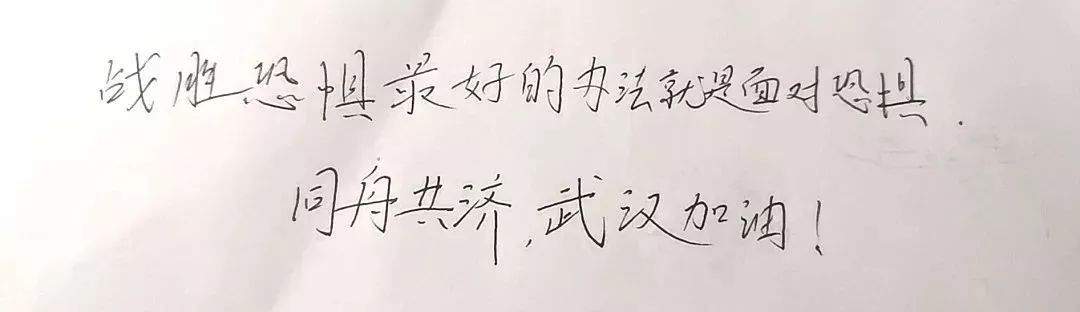 战胜恐惧最好的办法就是面对恐惧.
同舟共济,武汉加油!